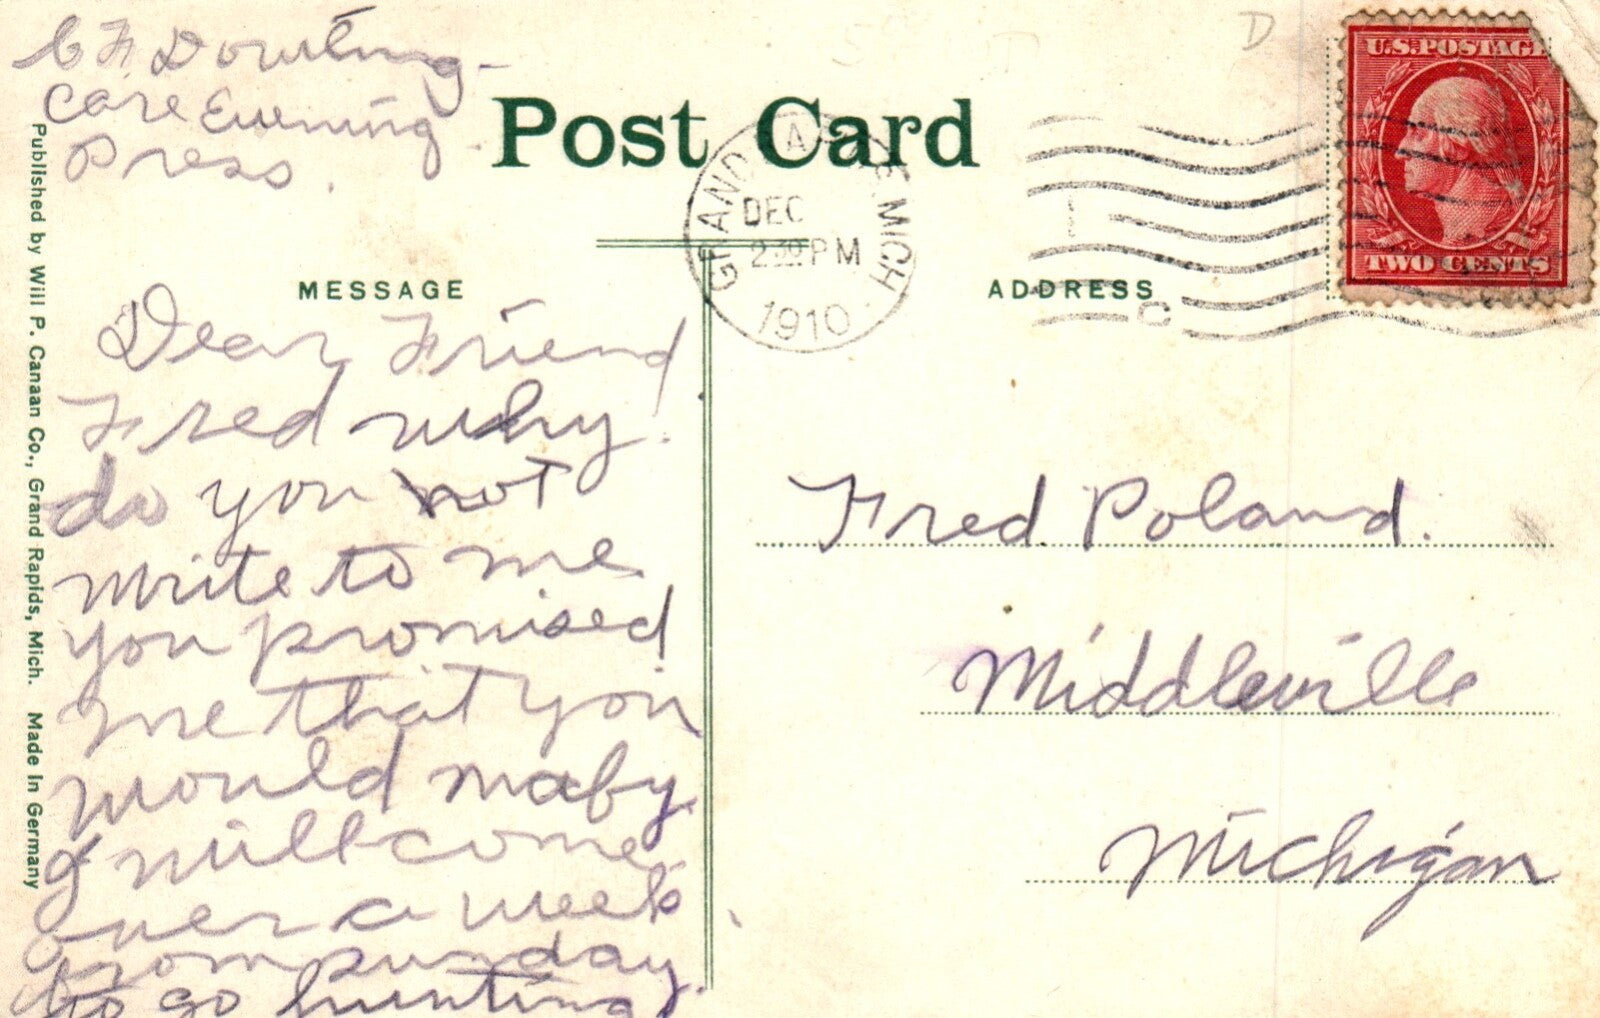 C F Dowling
Care Evening
Press.
Post Card
GRAND MICH
DEC
2 30 PM
1910
U.S. POSTAGE
TWO CENTS
C
D
MESSAGE
ADDRESS
Dear Friend
Fred why
do you not
write to me
you promised
me that you
would maby
I will come
over a week
from sunday
to go hunting
Fred Poland.
Middleville
Michigan
Published by Will P. Canaan Co., Grand Rapids, Mich. Made In Germany